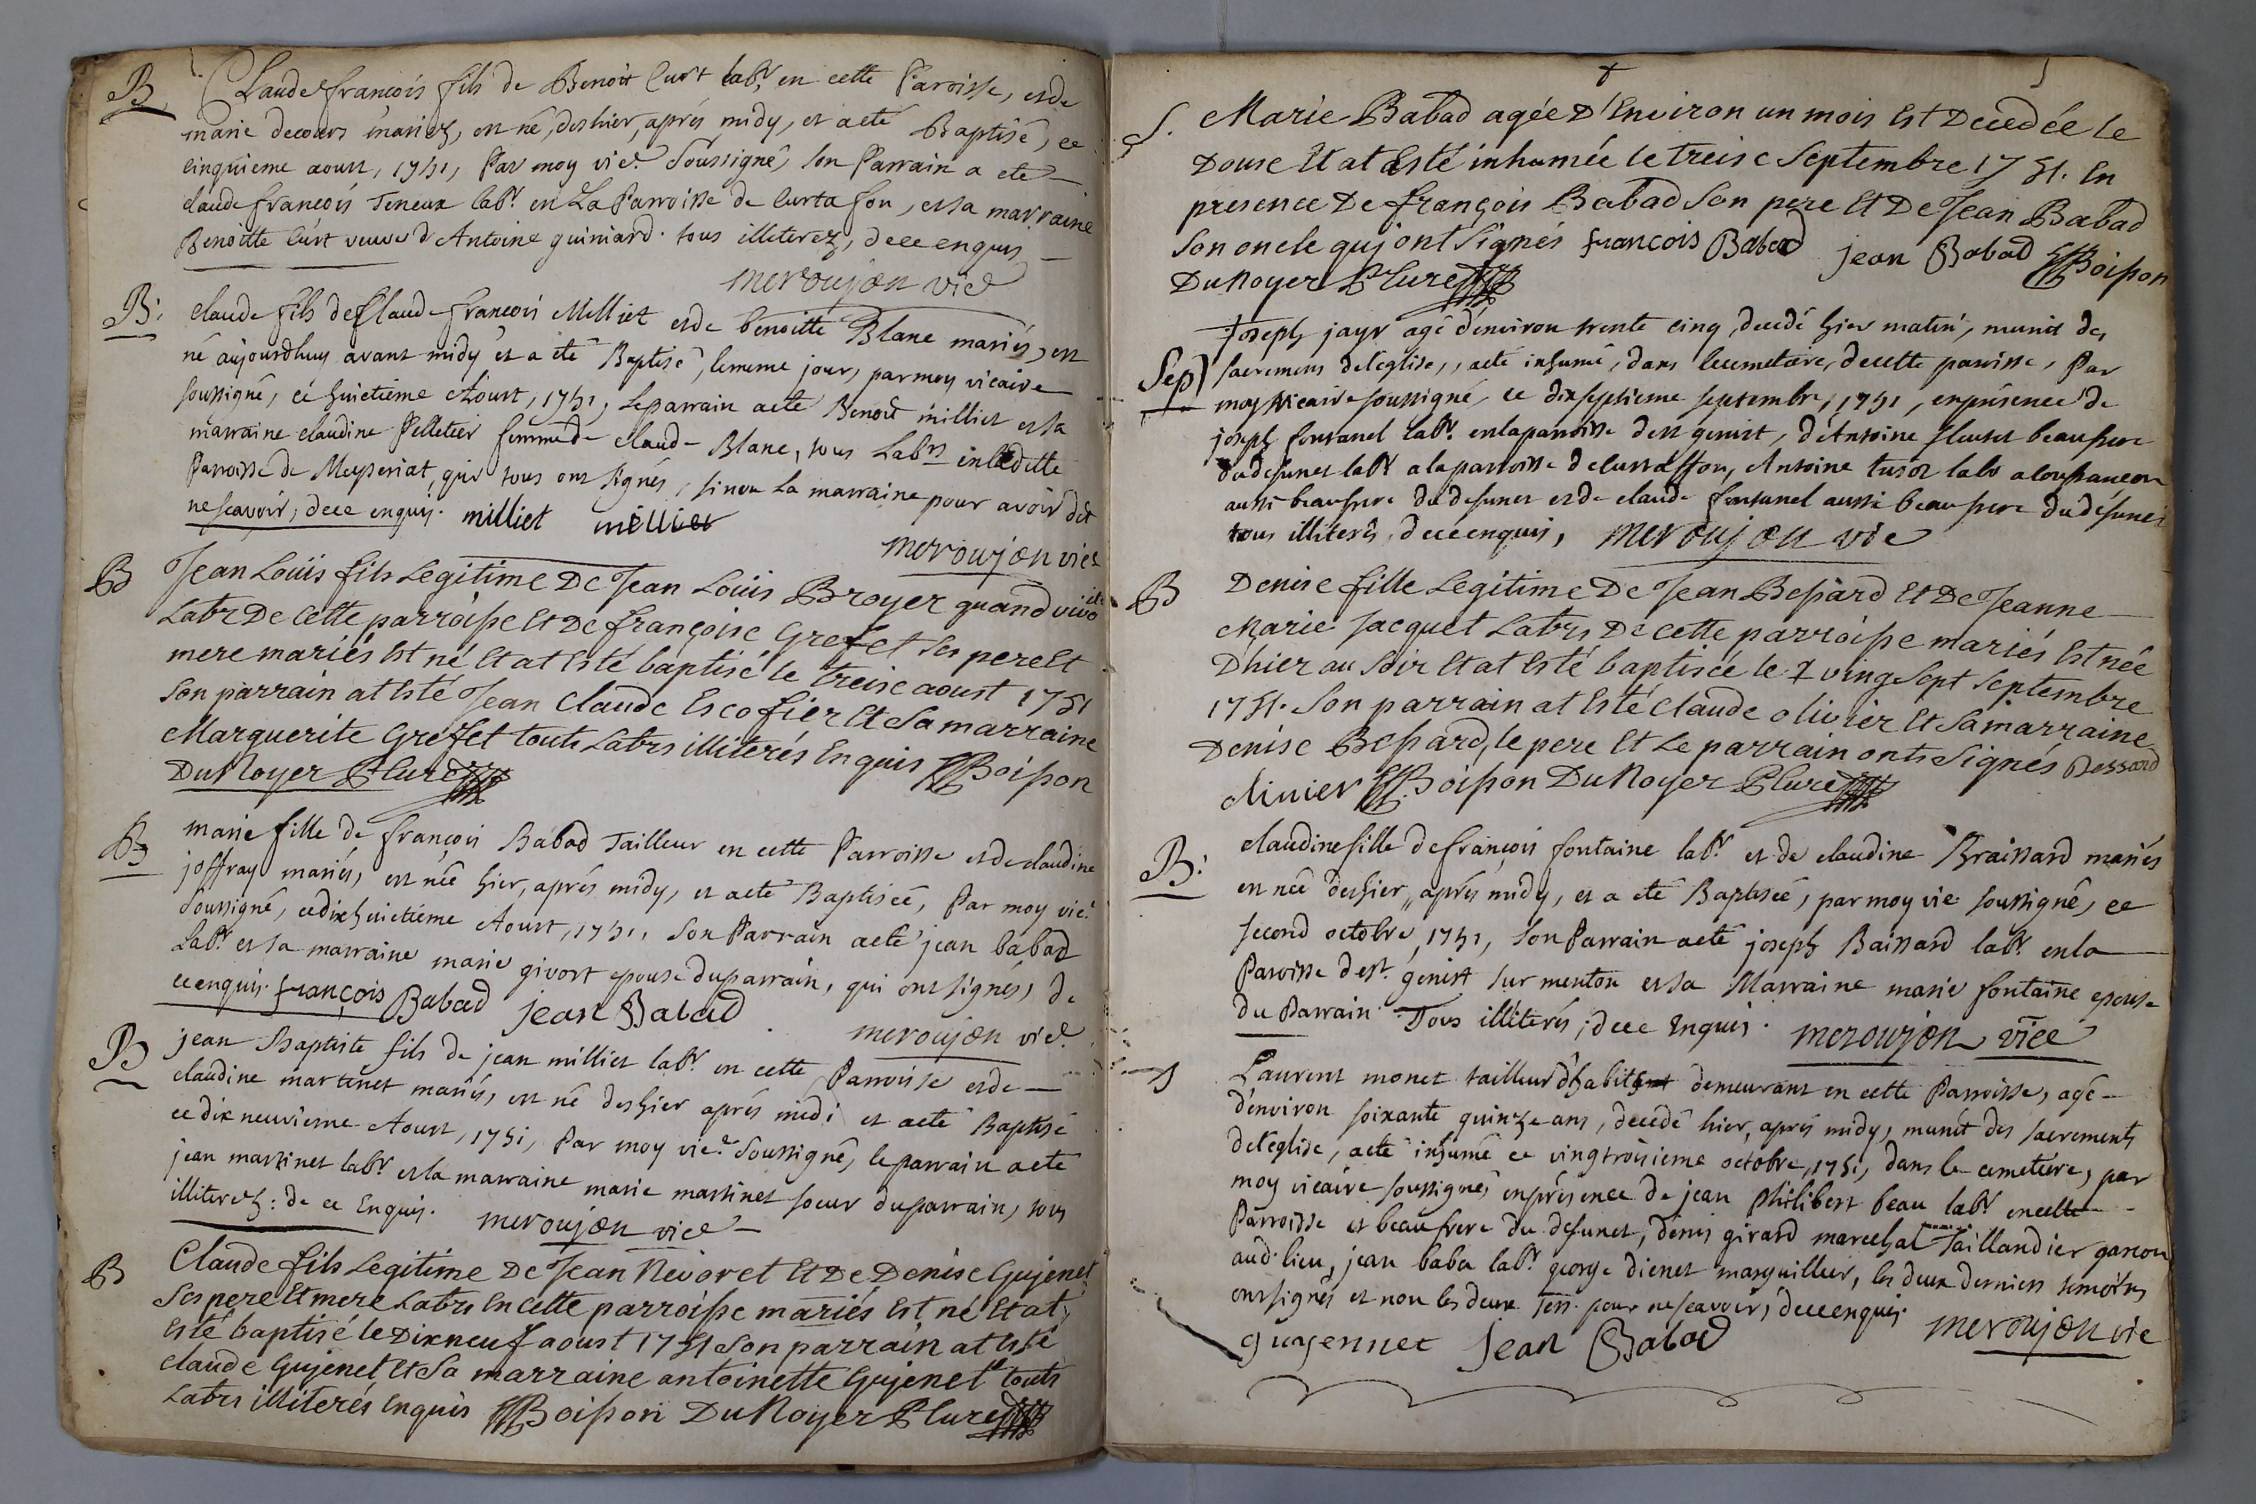 B Claude françois fils de Benoit Curt labr. en cette Paroisse, et de
marie decours mariez, est né, deshier, aprés midy, et a eté Baptisé, ce
cinquieme aoust, 1751, Par moy vic.e Soussigné, son Parrain a eté
claude françois Teneux labr. en La Parroisse de Curtafon, et sa marraine
Benoitte Curt veuve d'Antoine guiniard. tous illiterez, de ce enquis
meroujon vice
B. claude fils de Claude françois Milliet et de benoitte Blanc mariés, est
né aujourdhuy avant midy et a eté Baptisé, le meme jour, par moy vicaire
soussigné, ce huictiéme Aoust, 1751, le parrain a eté Benoit milliet et sa
marraine claudine Pelletier femme de claude Blanc, tous Labrs en ladette
Parroisse de Meyseriat, qui tous ont signés, sinon La marraine pour avoir dit
ne scavoir, de ce enquis. milliet milliet
meroujon vice
B Jean Loüis fils Legitime De Jean Loüis Broyer quand vivoit
Labr De Cette parroisse Et De françoise Grefet ses pere Et
mere mariés Est né Et at Esté baptisé le treise aoust 1751
Son parrain at Esté Jean Claude Escofier Et Sa marraine
Marguerite Grefet touts Labrs illiterés Enquis Boisson
DuNoyer P Cure
B marie fille de françois Babad Tailleur en cette Parroisse et de claudine
joffray mariés, est née hier, aprés midy, et a eté Baptisée, Par moy vic.
Soussigné, ce dix huictiéme Aoust, 1751, son Parrain a eté jean babad
Labr. et sa marraine marie givort epouse du parrain, qui ont signés, de
ce enquis. françois Babad jean Babad
meroujon vice
B jean Baptiste fils de jean milliet labr. en cette Parroisse et de
claudine martinet mariés, est né deshier aprés midi et a eté Baptisé
ce dix neuvieme Aoust, 1751, Par moy vic.e Soussigné, le parrain a eté
jean martinet labr. et la marraine marie martinet soeur du parrain, tous
illiterez: de ce Enquis. meroujon vice
B Claude fils Legitime De Jean Nevoret Et De Denise Gujenet
Ses pere Et mere Labrs En Cette parroisse mariés Est né Et at
Esté baptisé le Dixneuf aoust 1751 Son parrain at Esté
Claude Gujenet Et Sa marraine antoinette Gujenet touts
Labrs illiterés Enquis Boisson DuNoyer P Cure
S. Marie Babad agée D'Environ un mois Est Decedée le
Douse Et at Esté inhumée le treise Septembre 1751. En
presence De françois Babad Son pere Et De Jean Babad
Son oncle quj ont Signés françois Babad jean Babad Boisson
DuNoyer P Cure
Joseph jayr agé d'environ trente cinq, decedé hier matin, munit des
Sep) sacremens del'eglise,, a eté inhumé, dans le cemetaire, de cette parrisse, Par
moy Vicaire soussigné, ce dix septieme septembre, 1751, en présence de
joseph fontanel labr. en la parroisse de st genist, d'Antoine beaufrere
du defunct labr a la parroisse de Curtaffon, Antoine labr
aussi beaufrere du defunct et de claude fontanel aussi beaufrere du défunct
tous illiterés, de ce enquis, meroujon vic
B Denise fille Legitime De Jean Bessard Et De Jeanne
Marie Jacquet Labrs De Cette parroisse mariés Est née
D'hier au Soir Et at Esté baptisée le ving Sept Septembre
1751. Son parrain at Esté Claude olivier Et Sa marraine
Denise Bessard, le pere Et Le parrain onts Signés Bessard
olivier Boisson DuNoyer P Cure
B. claudine fille de françois fontaine labr. et de claudine Braissard mariés
est née deshier,, aprés midy, et a eté Baptisée, par moy vic soussigné, ce
second octobre, 1751, son Parrain a eté joseph Baissard labr. en la
Paroisse de st. génist sur menton et sa Marraine marie fontaine epouse
du Parrain. Tous illiterés, de ce Enquis. meroujon vice
S Laurent monet tailleur d'habits demeurant en cette Parroisse, agé
d'environ soixante quinze ans, decedé hier, aprés midy, munit des sacrements
del'eglise, a eté inhumé ce vingtroisieme octobre, 1751, dans le cemetiere, par
moy vicaire soussigné, en présence de jean Philibert beau labr. en cette
Parroisse et beaufrere du defunct, denis girard marechal Taillandier garçon
aud. lieu, jean baba labr. george dienet marguillier, les deux derniers temoins
ont signés et non les deux Tess. pour ne scavoir, de ce enquis.
gugennet Jean Babad meroujon vic